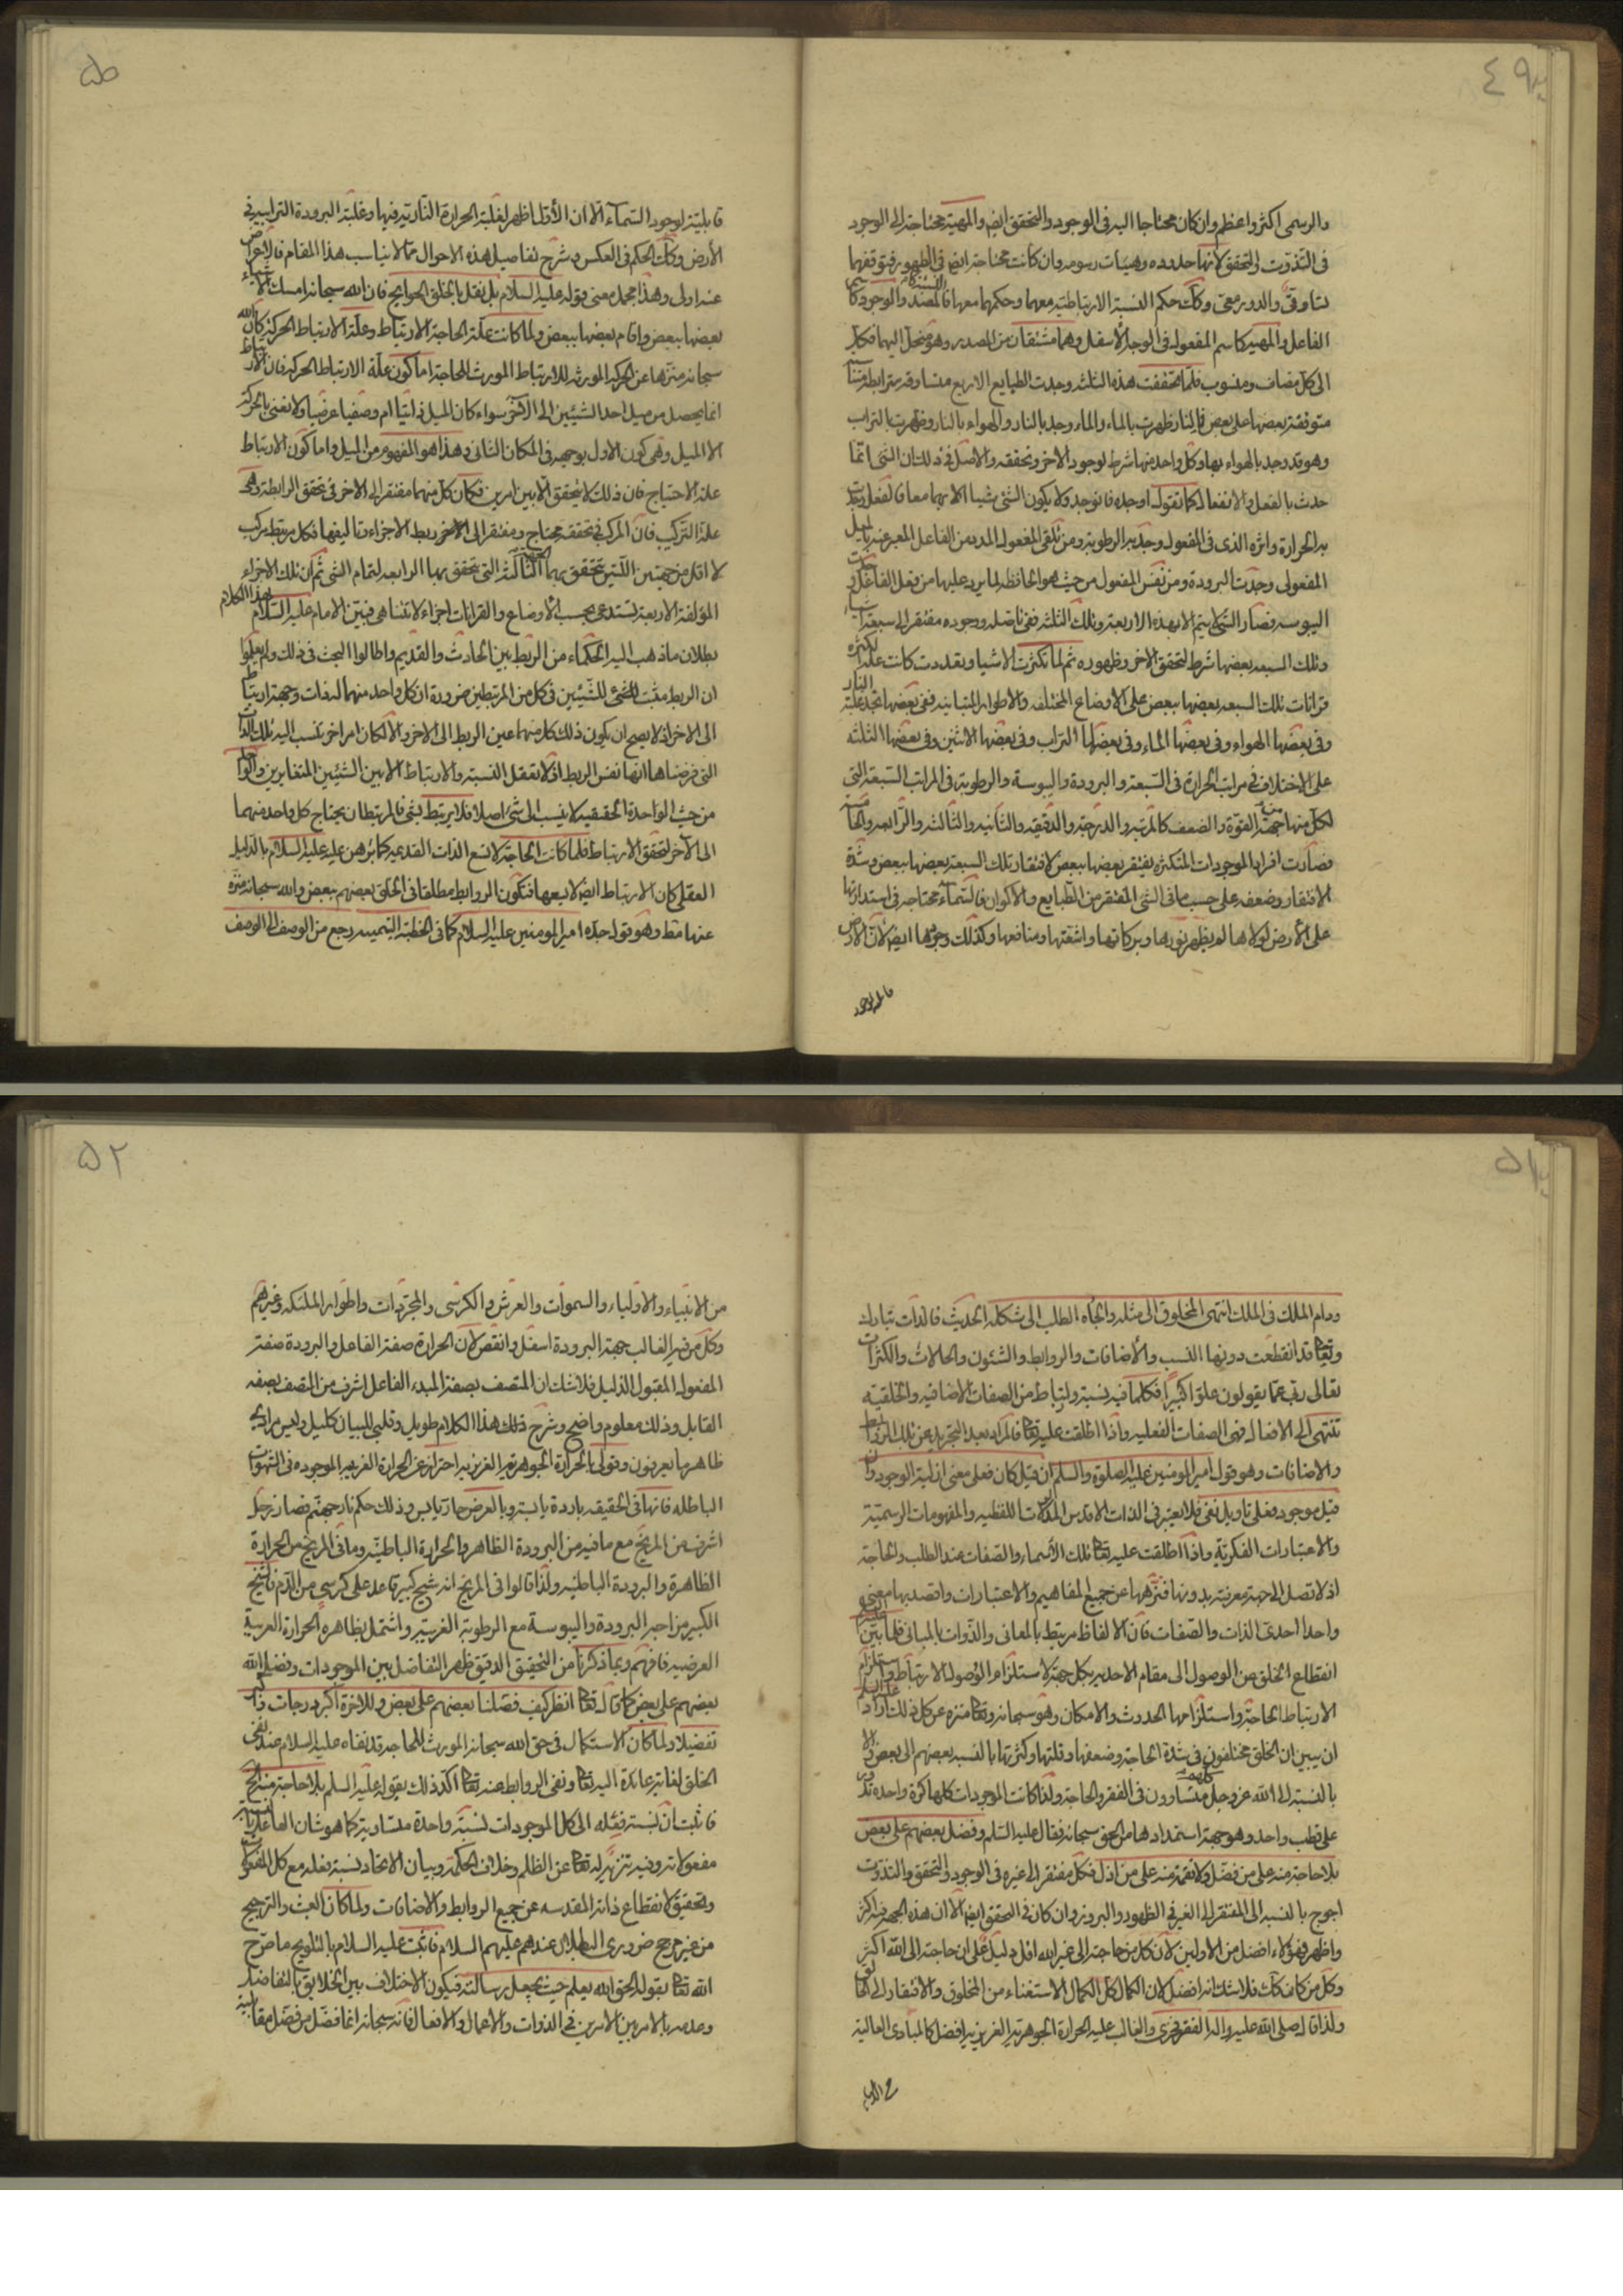 ٤٩
والرسمى اكثر واعظم وان كان محتاجا اليه فى الوجود والتحقق ايض والمهية محتاجة الى الوجود
فى التذوت والتحقق لانها حدوده وهيئات رسومه وان كانت محتاجة ايض فى الظهور فتوقفهما
تساوقىّ والدور معىّ وكك حكم النسبة الارتباطية معهما وحكمهما معها فالمصدر والوجود كاسم
الفاعل والمهية كاسم المفعول فى الوجه الأسفل وهما مشتقان من المصدر وهو منحل اليهما فكك
الى كل مضاف ومنسوب فلما تحققت هذه الثلثة وجدت الطبايع الاربع متساوقة مترابطة
متوقفة بعضها على بعض فالنار ظهرت بالماء والماء وجد بالنار والهواء بالنار وظهرت بالتراب
وهو قد وجد بالهواء بها وكل واحد منها شرط لوجود الاخر وتحققه والاصل فى ذلك ان الشى انما
حدث بالفعل والانفعال كما تقول اوجده فانوجد ولا يكون الشى شيئا الا بهما معا فالفعل وجدت
به الحرارة واثره الذى فى المفعول وجد به الرطوبة ومن تلقى المفعول المدد من الفاعل المعبر عنه بالميل
المفعولى وجدت البرودة ومن نفس المفعول من حيث هو الحافظة لما يرد عليها من فعل الفاعل وجدت
اليبوسة فصار الشى لا يتم الا بهذه الاربعة وتلك الثلثة ففى تاصله ووجوده مفتقر الى سبعة اشياء
وتلك السبعة بعضها شرط لتحقق الاخر وظهوره ثم لما تكثرت الاشيا وتعددت كانت علة الكثرة
قرانات تلك السبعة بعضها ببعض على الاوضاع المختلفة والاطوار المتباينة ففى بعضها تجد غلبة النار
وفى بعضها الهواء وفى بعضها الماء وفى بعضها التراب وفى بعضها الاثنين وفى بعضها الثلثة
على الاختلاف فى مراتب الحرارة فى السبعة والبرودة واليبوسة والرطوبة فى المراتب السبعة التى
لكل منها من جهة القوة والضعف كالمرتبة والدرجة والدقيقة والثانية والثالثة والرابعة والخامسة
فصارت افراد الموجودات المتكثرة يفتقر بعضها ببعض لافتقار تلك السبعة بعضها ببعض وشدة
الافتقار وضعفه على حسب ما فى الشى المفتقر من الطبايع والاكوان فالسماء محتاجة فى استدارتها
على الأرض لولاها لم يظهر نورها وبركاتها واشعتها ومنافعها وكذلك وجودها ايض لان الارض
قابلية لوجود
قابلية لوجود السماء الا ان الأول اظهر لغلبة الحرارة النارية فيها وغلبة البرودة الترابية فى
الأرض وكك الحكم فى العكس وشرح تفاصيل هذه الاحوال مما لا يناسب هذا المقام فالاعراض
عنه اولى وهذا مجمل معنى قوله عليه السلام بل نقل بالخلق الحوايج فان الله سبحانه امسك الاشياء
بعضها ببعض واقام بعضها ببعض ولما كانت علة الحاجة الارتباط وعلة الارتباط الحركة كان الله
سبحانه منزها عن الحركة المورثة للارتباط المورث للحاجة اما كون علة الارتباط الحركة فان الارتباط
انما يحصل من ميل احد الشيئين الى الآخر سواء كان الميل ذاتيا ام وصفيا عرضيا ولا نعنى بالحركة
الا الميل وهى كون الاول بوجهه فى المكان الثانى وهذا هو المفهوم من الميل واما كون الارتباط
علة الاحتياج فان ذلك لا يتحقق الا بين امرين فكان كل منهما مفتقر الى الاخر فى تحقق الرابطة وهى
علة التركيب فان المركب فى تحققه محتاج ومفتقر الى الاخر وربط الاجزاء وتاليفها فكل مرتبط مركب
لا اقل من جهتين اللتين تتحقق بهما الثالثة التى يتحقق بها الرابعة لتمام الشى ثم ان تلك الاجزاء
المؤلفة الاربعة تستدعى بحسب الأوضاع والقرانات اجزاء لا تتناهى فبين الامام عليه السلام بهذا الكلام
بطلان ماذهب اليه الحكماء من الربط بين الحادث والقديم واطالوا البحث فى ذلك ولم يعلموا
ان الربط مثبت للشئ للشيئين فى كل من المرتبطين ضرورة ان كل واحد منهما له ذات وجهة ارتباط
الى الاخر اذ لا يصح ان يكون ذلك كل منهما عين الربط الى الاخر والا لكان امر اخر ينسب اليه تلك الذات
التى فرضناها انها نفس الربط اذ لا تعقل النسبة والارتباط الا بين الشيئين المتغايرين والواحد
من حيث الواحدة الحقيقية لا ينسب الى شئ اصلا فلا يرتبط بشى فالمرتبطان يحتاج كل واحد منهما
الى الآخر لتحقق الارتباط فلما كانت الحاجة لا تسع الذات القديمة كما برهن عليه عليه السلام بالدليل
العقلى كان الارتباط ايض لا يسعها فتكون الروابط مطلقا فى الخلق بعضهم ببعض والله سبحانه منزه
عنها مط وهو قول جده امير المومنين عليه السلام كما فى الخطبة اليتيمية رجع من الوصف الى الوصف
٥١
ودام الملك فى الملك انتهى المخلوق الى مثله والجأه الطلب الى شكله الحديث فالذات تبارك
وتعالى قد انقطعت دونها النسب والأضافات والروابط والشئون والحالات والكثرات
تعالى ربى عما يقولون علوا كبيرا فكلما فيه نسبة وارتباط من الصفات الاضافية والخلقية
تنتهى الى الافعال فهى الصفات الفعلية واذا اطلقت عليه تعالى فالمراد بعد التجريد عن تلك الروابط
والاضافات وهو قول امير المومنين عليه الصلوة والسلم ان قيل كان فعلى معنى ازلية الوجود وان
قيل موجود فعلى تاويل نفى فلا يعتبر فى الذات الاقدس الدلالات اللفظية والمفهومات الرسمية
والاعتبارات الفكرية واذا اطلقت عليه تعالى تلك الأسماء والصفات عند الطلب والحاجة
اذ لا تصل الى جهة معرفته بدونها فنزهها عن جميع المفاهيم والاعتبارات واقصد بها معنى
واحدا احدى الذات والصفات فان الالفاظ مرتبط بالمعانى والذوات بالمبانى فلما بين عليه السلم
انقطاع الخلق عن الوصول الى مقام الاحدية بكل جهة لاستلزام الوصول الارتباط واستلزام
الارتباط الحاجة واستلزامها الحدوث والامكان وهو سبحانه وتعالى منزه عن كل ذلك اراد عليه السلم
ان يبين ان الخلق مختلفون فى شدة الحاجة وضعفها وقلتها وكثرتها بالنسبة بعضهم الى بعض والا
بالنسبة الى الله عز وجل كلهم متساوون فى الفقر والحاجة ولذا كانت الموجودات كلها كرة واحدة تدور
على قطب واحد وهو جهة استمدادها من الحق سبحانه فقال عليه السلم وفضل بعضهم على بعض
بلا حاجة منه على من فضل ولا نقمة منه على من اذل فكل مفتقر الى غيره فى الوجود والتحقق والتذوت
احوج بالنسبة الى المفتقر الى الغير فى الظهور والبروز وان كان فى التحقق ايض الا ان هذه الجهة فيه اكثر
واظهر فهؤلاء افضل من الاولين لان كل من حاجته الى غير الله اقل دليل على ان حاجته الى الله اكثر
وكل من كان كك فلا شك انه افضل لان الكمال كل الكمال الاستغناء من المخلوق والافتقار الى الخالق
ولذا قال صلى الله عليه واله الفقر فخرى والغالب عليه الحرارة الجوهرية الغريزية افضل كالمبادى العالية
من الانبياء
٥٢
من الانبياء والاولياء والسموات والعرش والكرسى والمجردات واطوار الملئكة وغيرهم
وكل من فيه الغالب جهة البرودة اسفل وانقص لان الحرارة صفة الفاعل والبرودة صفة
المفعول المقبول الذليل فلا شك ان المتصف بصفة المبدء الفاعل اشرف من المتصف بصفة
القابل وذلك معلوم واضح وشرح ذلك هذا الكلام طويل وقلبى للبيان كليل وليس مرادى
ظاهر ما يعرفون وقولى بالحرارة الجوهرية الغريزية احتراز عن الحرارة الغريبة الموجودة فى الشهوات
الباطلة فانها فى الحقيقة باردة يابسة وبالعرض حار يابس وذلك حكم نار جهنم فصار زحل
اشرف من المريخ مع ما فيه من البرودة الظاهر والحرارة الباطنية وما فى المريخ من الحرارة
الظاهرة والبرودة الباطنية ولذا قالوا فى المريخ انه شيخ كبير قاعد على كرسى من الدم فالشيخ
الكبير من اجل البرودة واليبوسة مع الرطوبة الغريبة واشتمل بظاهره الحرارة الغريبة
العرضية فافهم وبما ذكرنا من التحقيق الدقيق ظهر التفاضل بين الموجودات وفضل الله
بعضهم على بعض كما قال تعالى انظر كيف فضلنا بعضهم على بعض وللاخرة اكبر درجات واكبر
تفضيلا ولما كان الاستكمال فى حق الله سبحانه المورث للحاجة قد نفاه عليه السلام عند نفى
الخلق لغاية عائدة اليه تعالى ونفى الروابط عنه تعالى اكد ذلك بقوله عليه السلم بلا حاجة منه الخ
فاثبت ان نسبة فعله الى كل الموجودات نسبة واحدة متساوية كما هو شان الفاعل بالنسبة
مفعولاته وفيه تنزيه له تعالى عن الظلم وخلاف الحكمة وبيان الاتحاد نسبة فعله مع كل المفعولات
وتحقيق لانقطاع ذاته المقدسة عن جميع الروابط والاضافات ولما كان العبث والترجيح
من غير مرجح ضرورى البطلان عندهم عليهم السلام فاثبت عليه السلام بالتلويح ما صرح
الله تعالى بقوله الحق الله يعلم حيث يجعل رسالته فيكون الاختلاف بين الخلايق بالتفاضل
وعدمه بالامر بين الامرين فى الذوات والاعمال والافعال فانه سبحانه انما فضل من فضل بقابليته